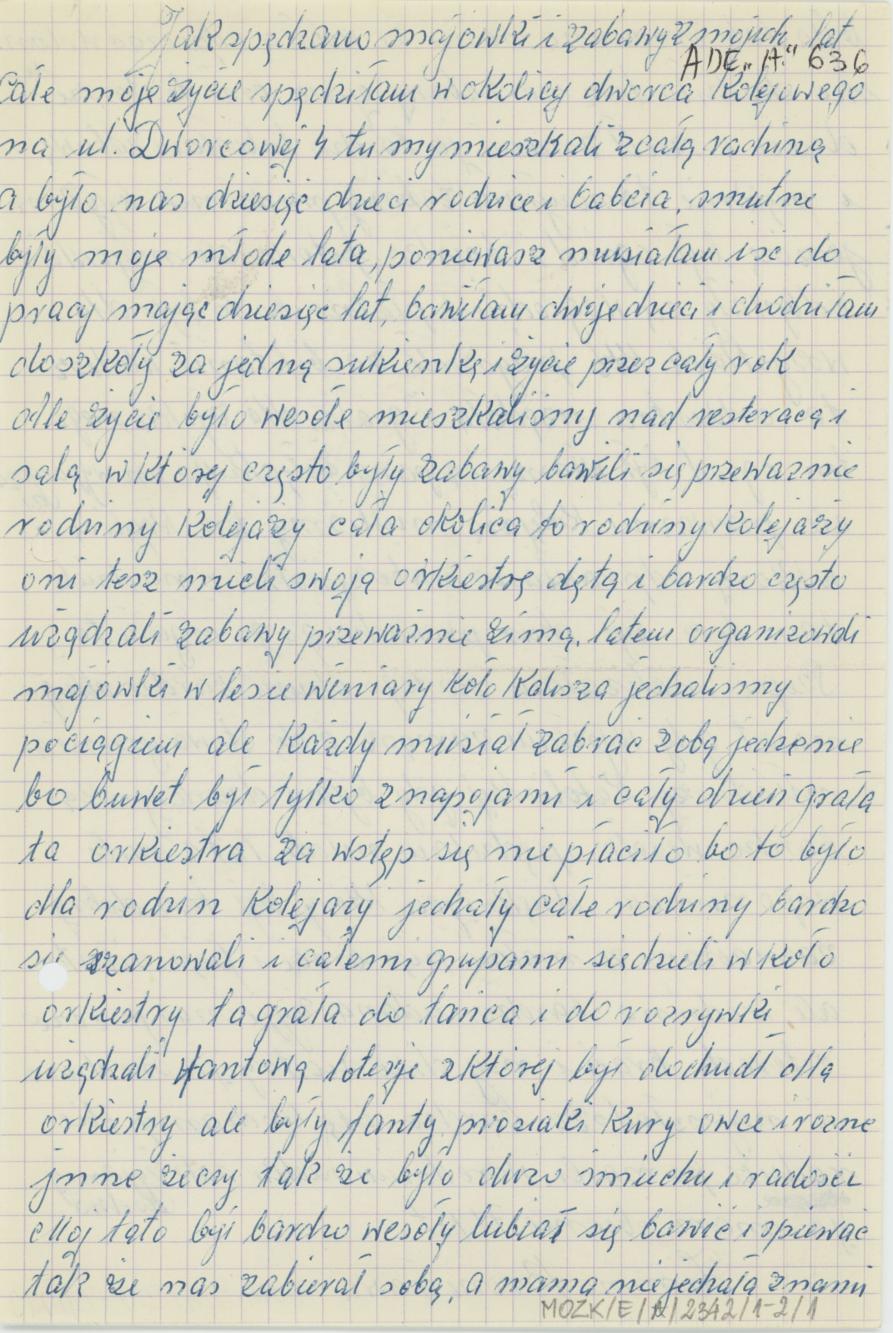 Jak spędzano majowki i zabawy z mojch lat
ADE „A." 636
Całe moje życie spędziłam w okolicy dworca kolejowego
na ul. Dworcowej 4 tu my mieszkali z całą rodziną
a było nas dziesięć dzieci rodzice i babcia, smutne
były moje młode lata, poniewasz musiałam isć do
pracy mając dziesięc lat, bawiłam dwoje dzieci i chodziłam
do szkoły za jedną sukienkę i życie przez cały rok
Ale życie było wesołe mieszkaliśmy nad resteracą i
salą w której często były zabawy bawili się przewaznie
rodziny kolejaży cała okolica to rodziny kolejaży
oni tesz mieli swoją orkiestrę dętą i bardzo często
użądzali zabawy przeważnie zimą, latem organizowali
majowki w lesie winiary koło Kalisza jechalismy
pociągiem ale każdy musiał zabrać zobą jedzenie
bo buwet był tylko z napojami i cały dzień grała
ta orkiestra za wstęp się nie płaciło bo to było
dla rodzin kolejazy jechały całe rodziny bardzo
się szanowali i całemi grupami siedzieli w koło
orkiestry ta grała do tańca i do rozrywki
użądzali fantową loterje z której był dochudł dla
orkiestry ale były fanty prosiaki kury owce i rozne
jnne żeczy tak że było duzo smiechu i radości
Moj tato był bardzo wesoły lubiał się bawić i spiewać
tak że nas zabierał sobą, a mama nie jechała z nami
MOZK/E/A/2342/1-2/1